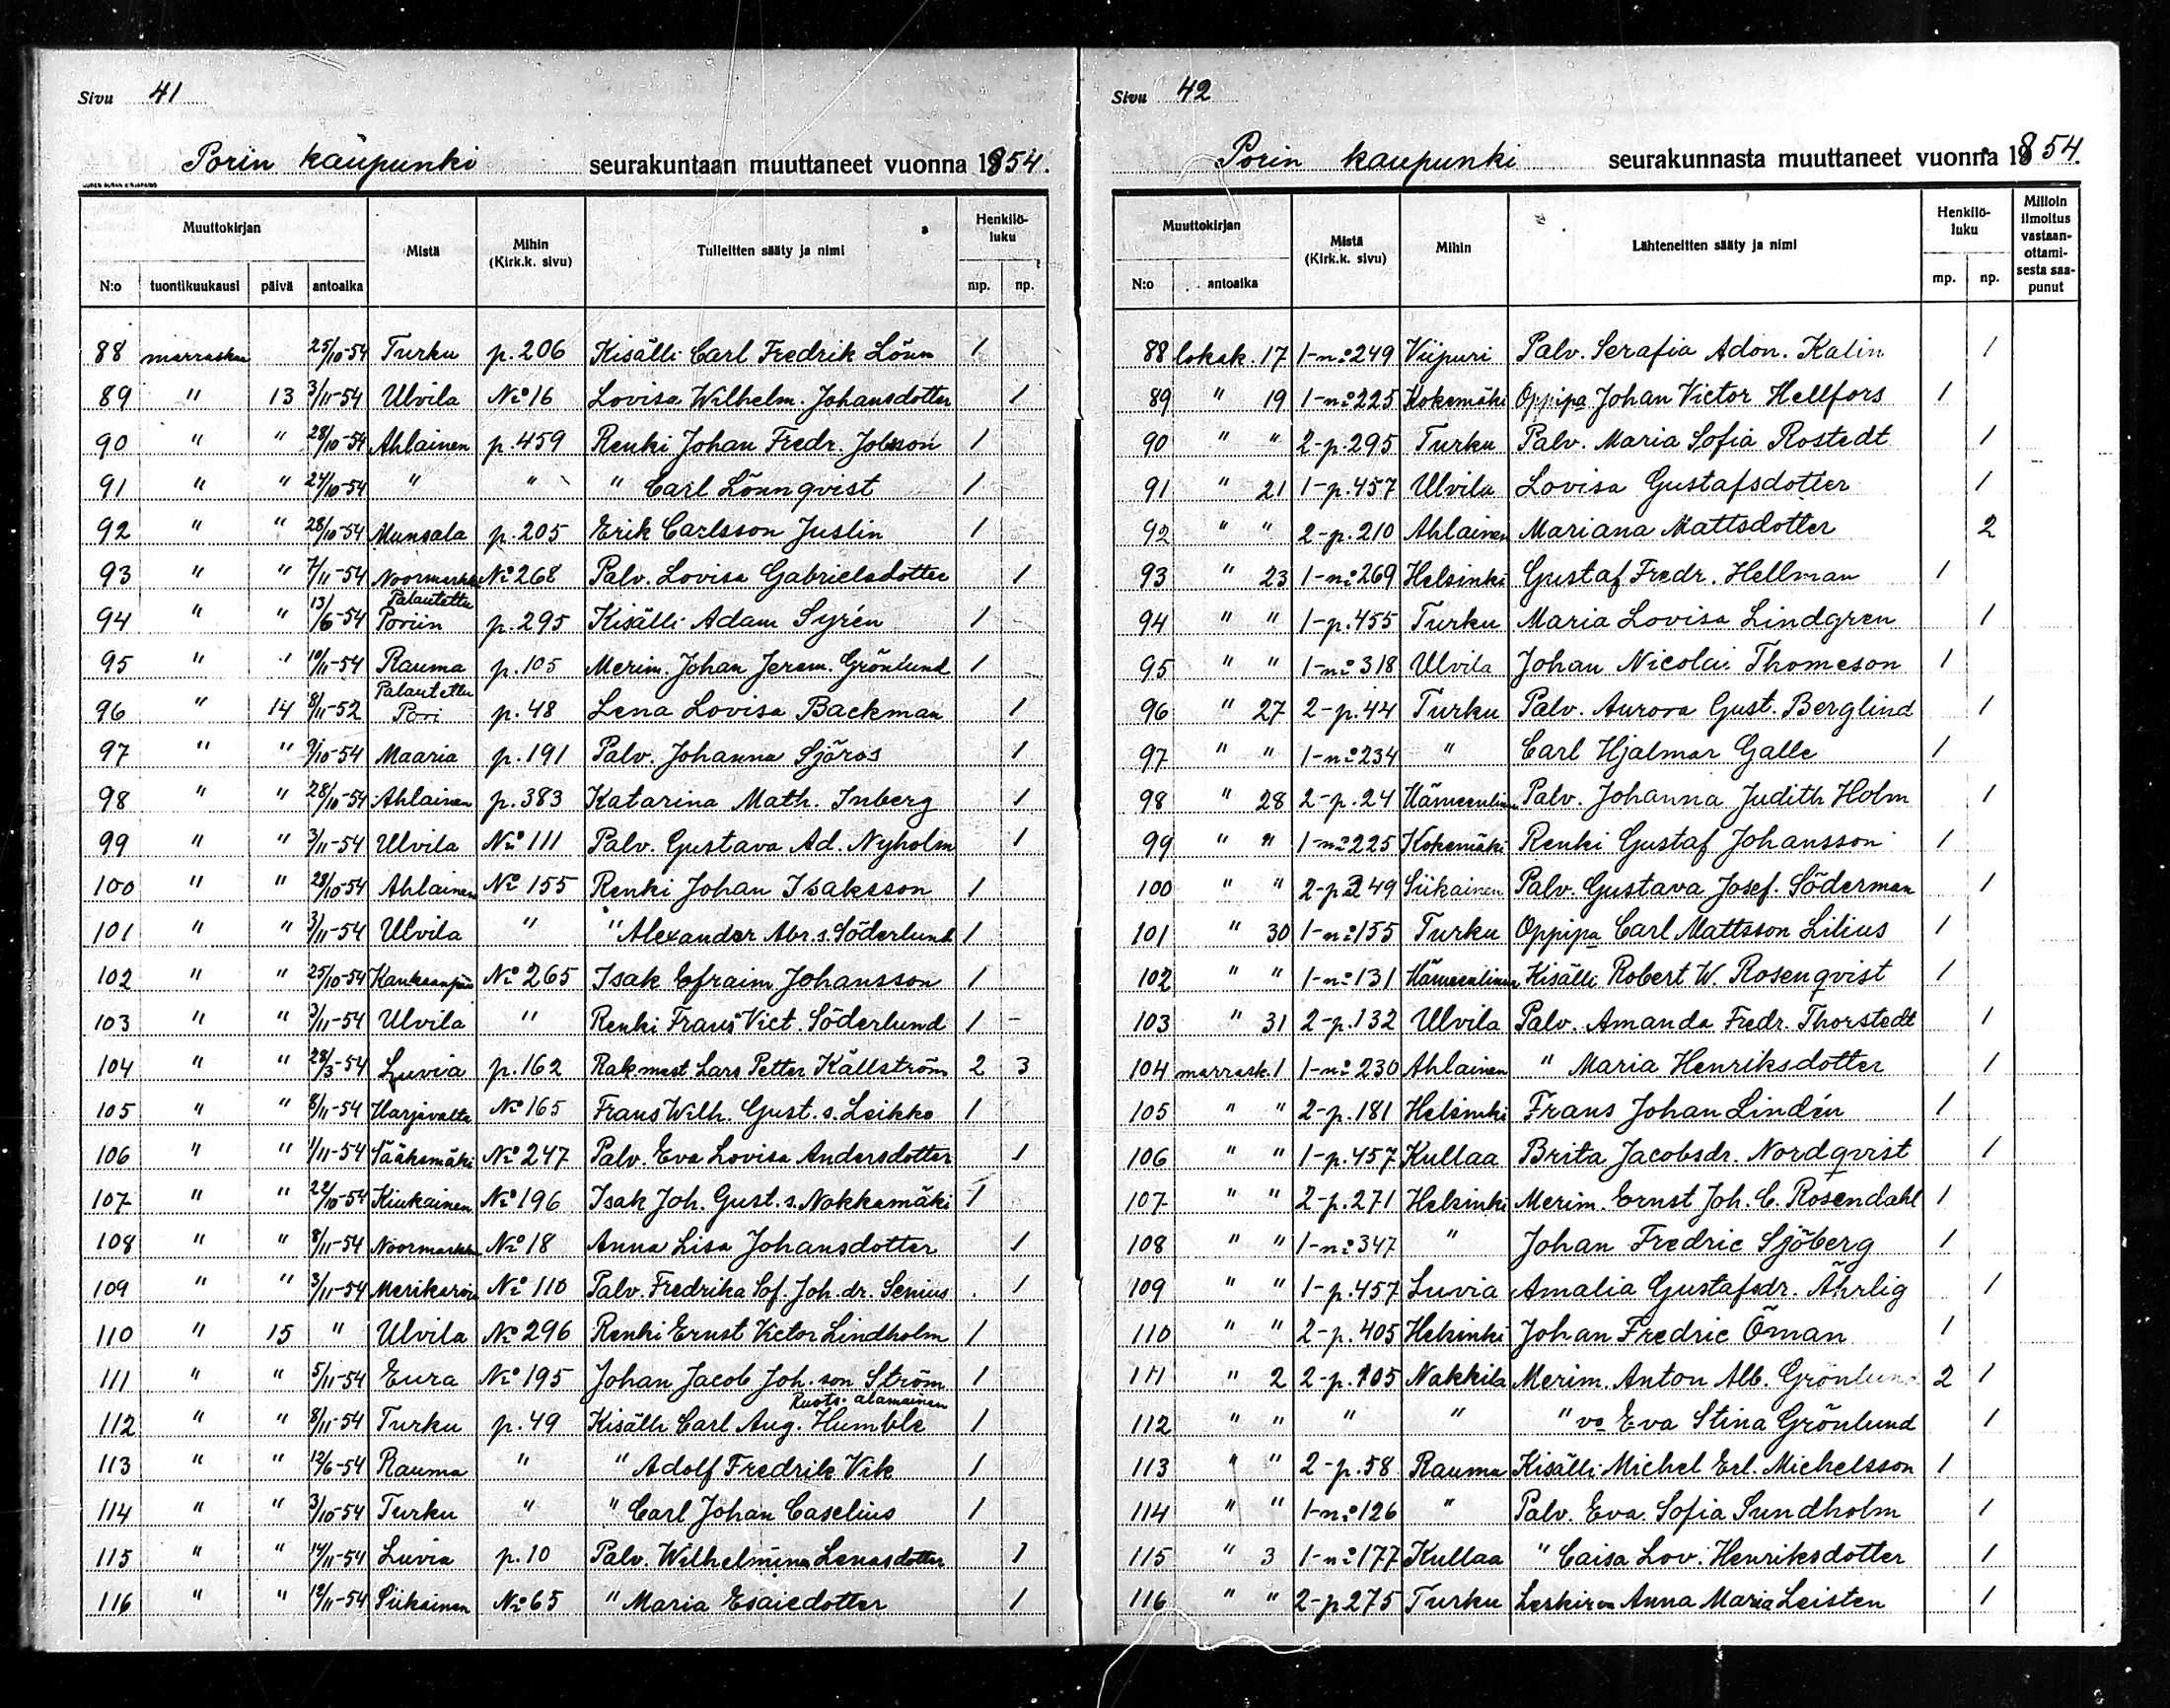 Sivu 41
Porin kaupunki seurakuntaan muuttaneet vuonna 1854.
Muuttokirjan Mistä Mihin (Kirk.k. sivu) Tulleitten sääty ja nimi Henkilö-luku
N:o tuontikuukausi päivä antoaika mp. np.
88 marraskuu 25/10-54 Turku p.206 Kisälli Carl Fredrik Lönn 1
89 " 13 3/11-54 Ulvila No 16 Lovisa Wilhelm. Johansdotter 1
90 " " 28/10-54 Ahlainen p.459 Renki Johan Fredr. Jobsson 1
91 " " 24/10-54 " " " Carl Lönnqvist 1
92 " " 28/10-54 Munsala p.205 Erik Carlsson Juslin 1
93 " " 7/11-54 Noormarkku No 268 Palv. Lovisa Gabrielsdotter 1
94 " " 13/6-54 Palautettu Poriin p.295 Kisälli Adam Syrén 1
95 " " 10/11-54 Rauma p.105 Merim. Johan Jerem. Grönlund 1
96 " 14 8/11-52 Palautettu Pori p.48 Lena Lovisa Backman 1
97 " " 9/10-54 Maaria p.191 Palv. Johanna Sjöros 1
98 " " 28/10-54 Ahlainen p.383 Katarina Math. Inberg 1
99 " " 3/11-54 Ulvila No 111 Palv. Gustava Ad. Nyholm 1
100 " " 28/10-54 Ahlainen No 155 Renki Johan Isaksson 1
101 " " 3/11-54 Ulvila " " Alexander Abr.s. Söderlund 1
102 " " 25/10-54 Kankaanpää No 265 Isak Efraim Johansson 1
103 " " 3/11-54 Ulvila " Renki Frans Vict. Söderlund 1 -
104 " " 28/3-54 Luvia p.162 Rak.mest Lars Petter Källström 2 3
105 " " 8/11-54 Harjavalta No 165 Frans Wilh. Gust.s. Leikko 1
106 " " 1/11-54 Sääksmäki No 247 Palv. Eva Lovisa Andersdotter 1
107 " " 22/10-54 Kiukainen No 196 Isak Joh. Gust.s. Nokkamäki 1
108 " " 8/11-54 Noormarkku No 18 Anna Lisa Johansdotter 1
109 " " 3/11-54 Merikarvia No 110 Palv. Fredrika Sof. Joh.dr. Senius 1
110 " 15 " Ulvila No 296 Renki Ernst Victor Lindholm 1
111 " " 5/11-54 Eura No 195 Johan Jacob Joh.son Ström 1
112 " " 8/11-54 Turku p.49 Kisälli Carl Aug. Humble Ruots. alamainen 1
113 " " 12/6-54 Rauma " " Adolf Fredrik Vik 1
114 " " 3/10-54 Turku " " Carl Johan Caselius 1
115 " " 14/11-54 Luvia p.10 Palv. Wilhelmina Lenasdotter 1
116 " " 12/11-54 Siikainen No 65 " Maria Esaiedotter 1
Sivu 42
Porin kaupunki seurakunnasta muuttaneet vuonna 1854.
Muuttokirjan Mistä (Kirk.k. sivu) Mihin Lähteneitten sääty ja nimi Henkilö-luku Milloin ilmoitus vastaan-ottami-sesta saa-punut
N:o antoaika mp. np.
88 lokak. 17 1-no 249 Viipuri Palv. Serafia Adon. Kalin 1
89 " 19 1-no 225 Kokemäki Oppipa Johan Victor Hellfors 1
90 " " 2-p.295 Turku Palv. Maria Sofia Rostedt 1
91 " 21 1-p.457 Ulvila Lovisa Gustafsdotter 1
92 " " 2-p.210 Ahlainen Mariana Mattsdotter 2
93 " 23 1-no 269 Helsinki Gustaf Fredr. Hellman 1
94 " " 1-p.455 Turku Maria Lovisa Lindgren 1
95 " " 1-no 318 Ulvila Johan Nicolai Thomeson 1
96 " 27 2-p.44 Turku Palv. Aurora Gust. Berglind 1
97 " " 1-no 234 " Carl Hjalmar Galle 1
98 " 28 2-p.24 Hämeenlinna Palv. Johanna Judith Holm 1
99 " " 1-no 225 Kokemäki Renki Gustaf Johansson 1
100 " " 2-p.249 Siikainen Palv. Gustava Josef. Söderman 1
101 " 30 1-no 155 Turku Oppipa Carl Mattsson Lilius 1
102 " " 1-no 131 Hämeenlinna Kisälli Robert W. Rosenqvist 1
103 " 31 2-p.132 Ulvila Palv. Amanda Fredr. Thorstedt 1
104 marrask. 1 1-no 230 Ahlainen " Maria Henriksdotter 1
105 " " 2-p.181 Helsinki Frans Johan Lindén 1
106 " " 1-p.457 Kullaa Brita Jacobsdr. Nordqvist 1
107 " " 2-p.271 Helsinki Merim. Ernst Joh. C. Rosendahl 1
108 " " 1-no 347 " Johan Fredric Sjöberg 1
109 " " 1-p.457 Luvia Amalia Gustafsdr. Ährlig 1
110 " " 2-p.405 Helsinki Johan Fredric Öman 1
111 " 2 2-p.105 Nakkila Merim. Anton Alb. Grönlund 2 1
112 " " " " " va Eva Stina Grönlund 1
113 " " 2-p.58 Rauma Kisälli Michel Erl. Michelsson 1
114 " " 1-no 126 " Palv. Eva Sofia Sundholm 1
115 " 3 1-no 177 Kullaa " Caisa Lov. Henriksdotter 1
116 " " 2-p 275 Turku Leskirva Anna Maria Leisten 1